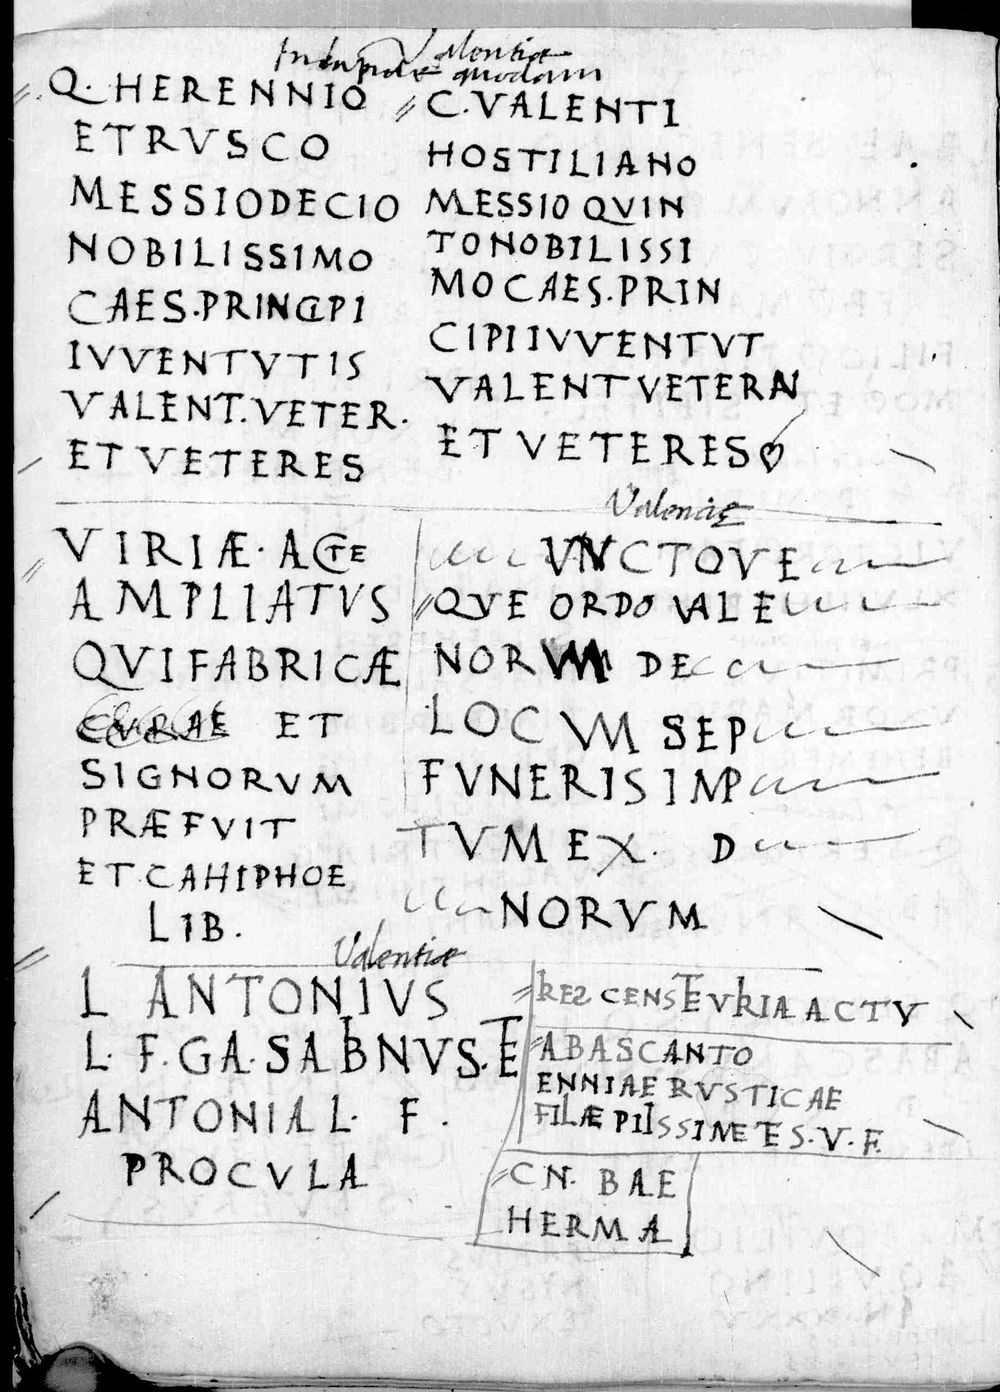 Valentiæ
quodam
Q. HERENNIO
ETRVSCO
MESSIODECIO
NOBILISSIMO
CAES.PRINCIPI
IVVENTVTIS
VALENT.VETER.
ET VETERES
C.VALENTI
HOSTILIANO
MESSIO QVIN
TONOBILISSI
MOCAES.PRIN
CIPIIVVENTVT
VALENTVETERAN
ET VETERES
VIRIÆ. ACTE
AMPLIATVS
QVIFABRICÆ
CVRAE ET
SIGNORVM
PRÆFVIT
ET.CAHIPHOE
LIB.
Valenciæ
VNCTOVE
QVE ORDO VALE
NORVM DE
LOCVM SEP
FVNERISIMP
TVMEX. D
NORVM
Valentiæ
L ANTONIVS
L. F.GA.SABNVS.TE
ANTONIAL. F.
PROCVLA
CENSTEVRIAACTV
ABASCANTO
ENNIAERVSTICAE
FILÆPIISSIMETES.V.F.
CN. BAE
HERMA